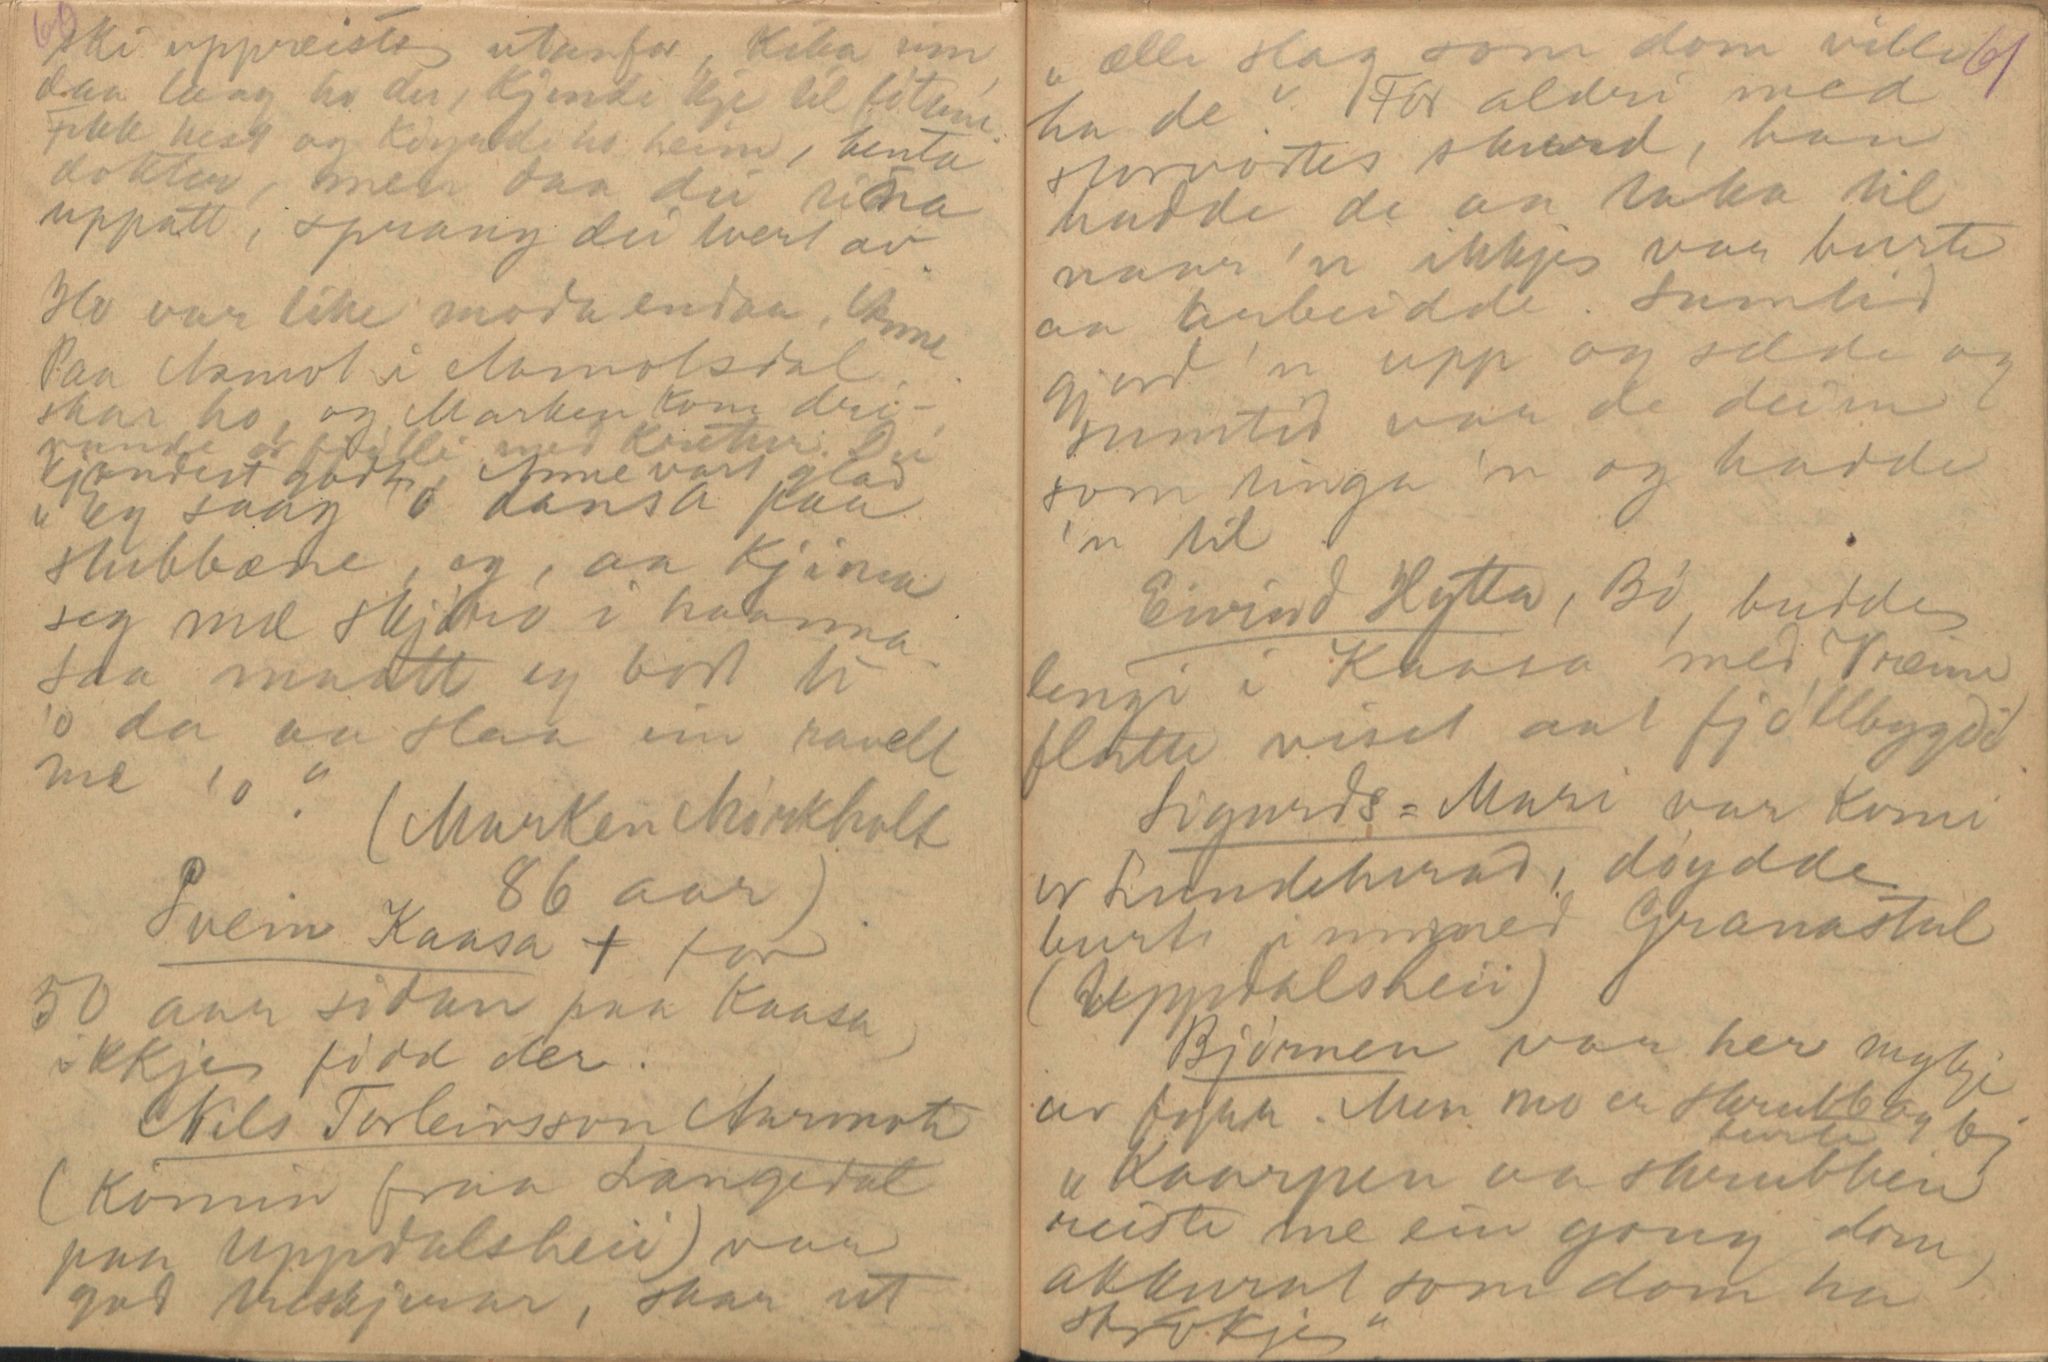 60
ski uppreiste utanfor, kika inn
daa laag ho der, kjende ikje til fótein.
Fekk hest og köyrde ho heim, henta
doktor, men daa dei
uppatt, sprang dei tvert av.
Ho var like moda endaa. Anne
Paa Aamot i Aamotsdal
skar ho, og Marken kom dri-
vande med kretur. Dei
kjendest godt, Anne vart glad
"Eg saag 'o dansa paa
stubbæne, eg, aa kjinka
seg mæ skjuro i haanna.
Saa maatt eg bort ti
'o da aa slaa ein ravell
mæ 'o."
(Marken Mörkholt
86 aar)
Svein Kaasa + for
50 aar sidan paa Kaasa,
ikkje född der.
Nils Torleivsson Aarmote
(komin fraa Langedal
paa Uppdalsheii) var
god treskjerar, skar ut
61
"alle slag som dom ville
ha de". Fór aldri med
storvortes skurd, han
hadde de aa taka til
naar 'n ikkje var burte
aa arbeidde. Sumtid
gjord 'n upp og selde og
sumtid var de deim
som tinga 'n og hadde
'n til
Eivind Hytta, Bö, budde
lengi i Kaasa med
flutte visst aat fjöllbygdó
Sigurds-Mari var komi
or Lundeherad, döydde
burti Granastul
(Uppdalsheii)
Björnen var her mykji
av fyrr. Men no er skrubb og bj
burte
"Kaarpen aa skrubben
reiste me ein gong dom,
akkurat som dom ha
strokje"